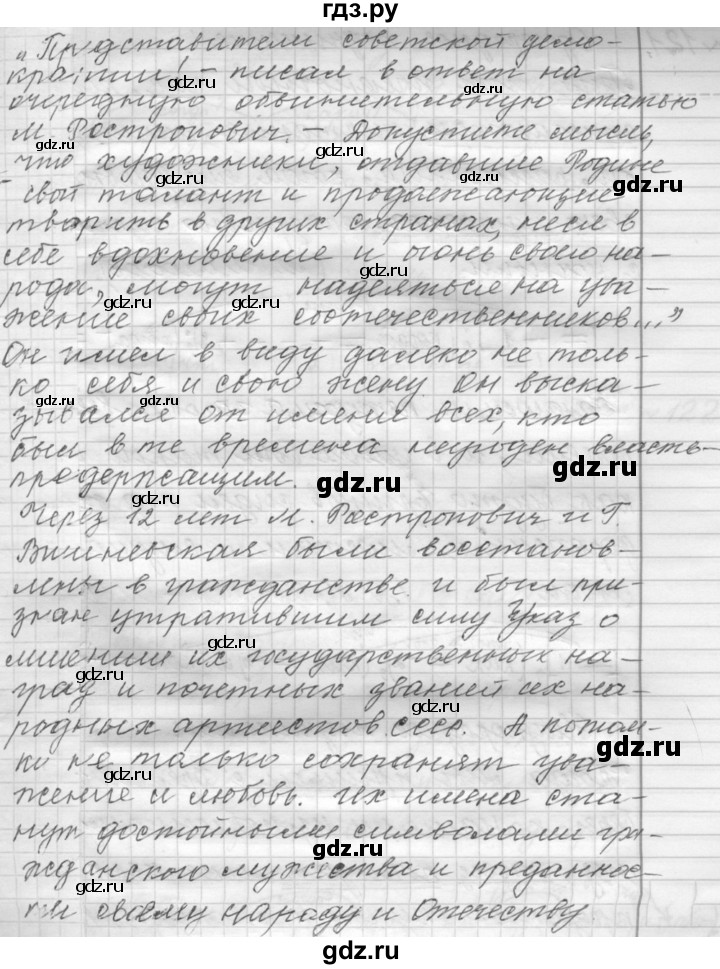 гдз.ру
„Представители советской демо-
кратии! – писал в ответ на
очередную обвинительную статью
М. Ростропович. – Допустите мысль,
что художники, отдавшие Родине
свой талант и продолжающие
творить в других странах, неся в
себе вдохновение и огонь своего на-
рода, могут надеяться на ува-
жение своих соотечественников..."
Он имел в виду далеко не толь-
ко себя и свою жену. Он выска-
зывался от имени всех, кто
был в те времена неугоден власть-
предержащим.
Через 12 лет М. Ростропович и Г.
Вишневская были восстанов-
лены в гражданстве и был при-
знан утратившим силу Указ о
лишении их государственных на-
град и почетных званий их на-
родных артистов СССР. А потом-
ки не только сохранят ува-
жение и любовь. Их имена ста-
нут достойными символами гра-
жданского мужества и преданнос-
ти своему народу и Отечеству.
gdz.ru